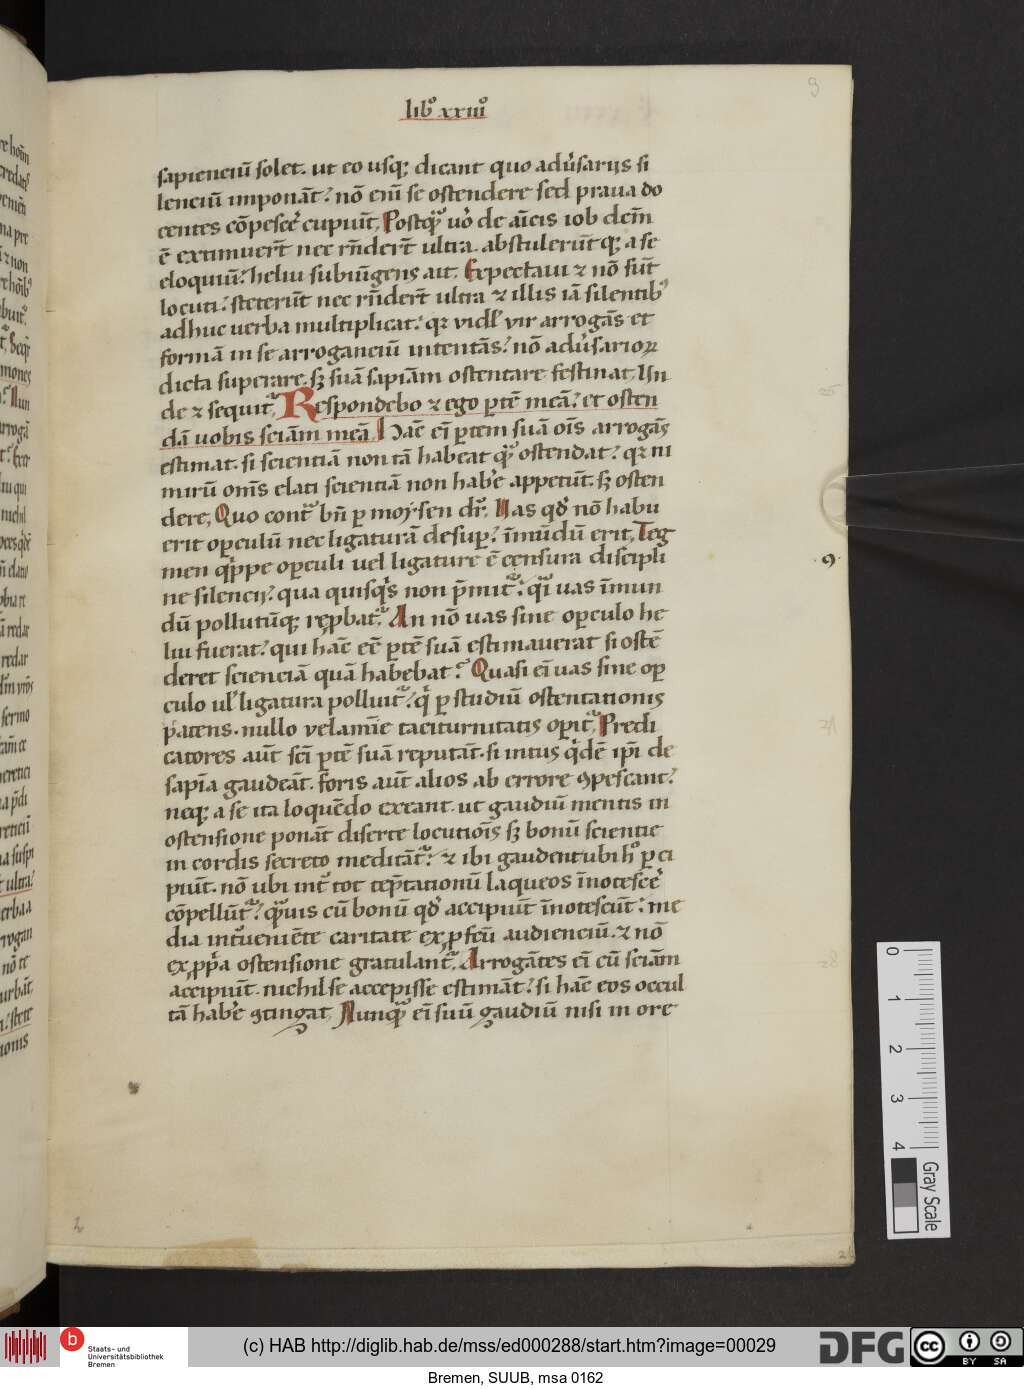 libꝰ xxiiiꝰ
sapienciū solet. ut eo usq; dicant quo adu̓sariis si
lenciū imponāt? nō enī se ostendere sed praua do
centes cōpesce̓ cupiūt, Postqᷓ uo̓ de am̄icis iob dem̄
ē extimuert̄ nec rn̄dert̄ ultra. abstulerūt q; a se
eloquiū? heliu subiūgens ait. Expectaui ⁊ nō sūt
locuti? steterūt nec rn̄dert̄ ultra ⁊ illis iā silentibꝰ
adhuc uerba multiplicat? qꝛ vidl̓ vir arrogās et
formā in se arroganciū intentās? nō adu̓sarioꝝ
dicta superare. sꝫ suā sapiām ostentare festinat, Un
de ⁊ sequit᷑, Respondebo ⁊ ego ꝑtē meā? et osten
dā uobis sciām meā, Hāc eī ꝑtem suā oīs arrogās
estimat. si scientiā non tā habeat qᷓ ostendat? qꝛ ni
mirū om̄s elati scientiā non habe̓ appetūt. sꝫ osten
dere, Quo cont᷑ bn̄ ꝑ moysen dr̄, Uas qd̓ nō habu
erit oꝑculū nec ligaturā desuꝑ? īmūdū erit, Teg
men qͥppe oꝑculi uel ligature ē censura discipli
ne silencij? qua quisqͥs non p̄mit᷑? qͣi uas īmun
dū pollutūq; rep̱bat᷑, An nō uas sine oꝑculo he
liu fuerat? qui hāc eē ꝑtē suā estimauerat si ostē
deret scienciā quā habebat? Quasi eī uas sine oꝑ
culo ul̓ ligatura polluit᷑? qͥ ꝑ studiū ostentationis
patens. nullo velamīe taciturnitatis oꝑit᷑, Predi
catores aūt scī ꝑtē suā reputāt. si intus qͥdē ip̄i de
sapīa gaudeāt. foris aūt alios ab errore ꝯpescant?
neq; a se ita loquēdo exeant. ut gaudiū mentis in
ostensione ponāt diserte locutiōis sꝫ bonū scientie
in cordis secreto meditāt᷑? ⁊ ibi gaudent ubi hͦ ꝑci
piūt. nō ubi int᷑ tot tep̄tationū laqueos īnotesce̓
cōpellūt᷑? qᷓuis cū bonū qd̓ accipiūt īnotesciūt? me
dia int᷑ueniēte caritate ex ꝓfcū audienciū. ⁊ nō
ex ꝓpͥa ostensione gratulant᷑. Arrogātes eī cū sciām
accipiūt. nichil se accepisse estimāt? si hāc eos occul
tā habe̓ ꝯtingat, Nunqᷓ eī suū gaudiū nisi in ore
9
0
1
2
3
4
Gray Scale
Staats- und
Universitätsbibliothek
Bremen
(c) HAB http://diglib.hab.de/mss/ed000288/start.htm?image=00029
DFG
cc
BY SA
Bremen, SUUB, msa 0162